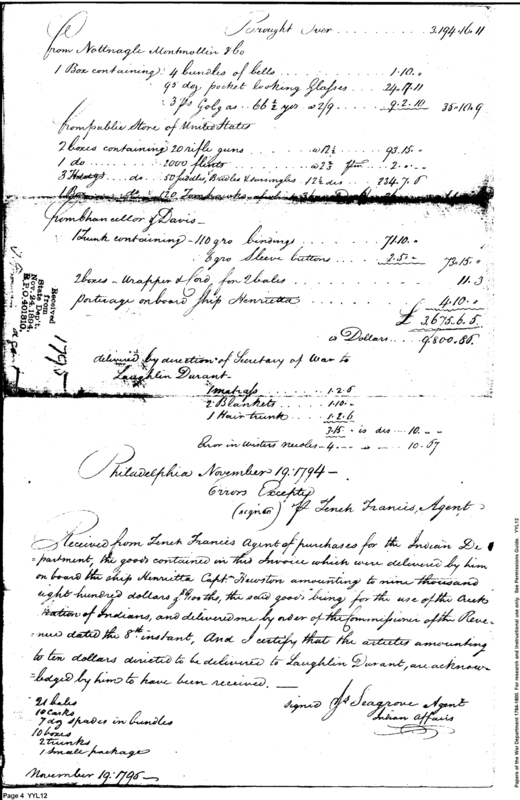 Brought Over . . . . 3.194.16.11
from Nottnagle Montmollin & Co
1 Box containing 4 bundles of bells . . . . 1.10. "
95 doz pocket looking Glasses . . . . 24.17.11
3 ps Golgas 66½ yds a 2/9 . . . . 9.2.10 35.10.9
from public Store of United States
2 boxes containing 20 rifle guns . . . . a 12½ . . . . 93.15. "
1 do . . . . 2000 flints . . . .
3 Hhdgs do. 50 saddles, Bridles & surcingles 12½ dis . . 234.7.6
from Chancellor & Davis
1 Trunk containing - 110 gro bindings . . . . 71.10. "
gro Sleeve buttons . . . . 2.5. " 73.15. "
2 boxes - Wrapper & Cord, for 2 bales . . . . 11.3
porterage on board Ship Henrietta . . . . 4.10. "
£ 3,675.6.5
is Dollars . . . . 9.800.86
delivered by direction of Secretary of War to
Laughlin Durant
1 matrass . . . . 1.2.6
2 Blankets . . . . 1.10. -
1 Hair trunk . . . . 1.2.6
3.15. - is dis - 10. -
Error in needles - 4. 10.67
Philadelphia November 19. 1794 -
Errors Excepted
(signed) Tench Francis, Agent
Received from Tench Francis Agent of purchases for the Indian De
partment, the goods contained in this Invoice which were delivered by him
on board the ship Henrietta Captn Hewston amounting to nine thousand
eight hundred dollars the said goods being for the use of the Creek
Nation of Indians, and delivered me by order of the Commissioner of the Reve-
nue dated the 8th instant, And I certify that the articles amounting
to ten dollars directed to be delivered to Laughlin Durant, are acknow-
ledged by him to have been received. -
signed Js Seagrove Agent
Indian Affairs
21 bales
10 casks
7 doz spades in bundles
10 boxes
2 trunks
1 small package
November 19. 1795 -
Received
from
State Dep't.
Nov. 24, 1894.
B.P.O. 401810.
1795
Page 4 YYL12
Papers of the War Department 1784-1800. For research and instructional use only. See Permissions Guide. YYL12